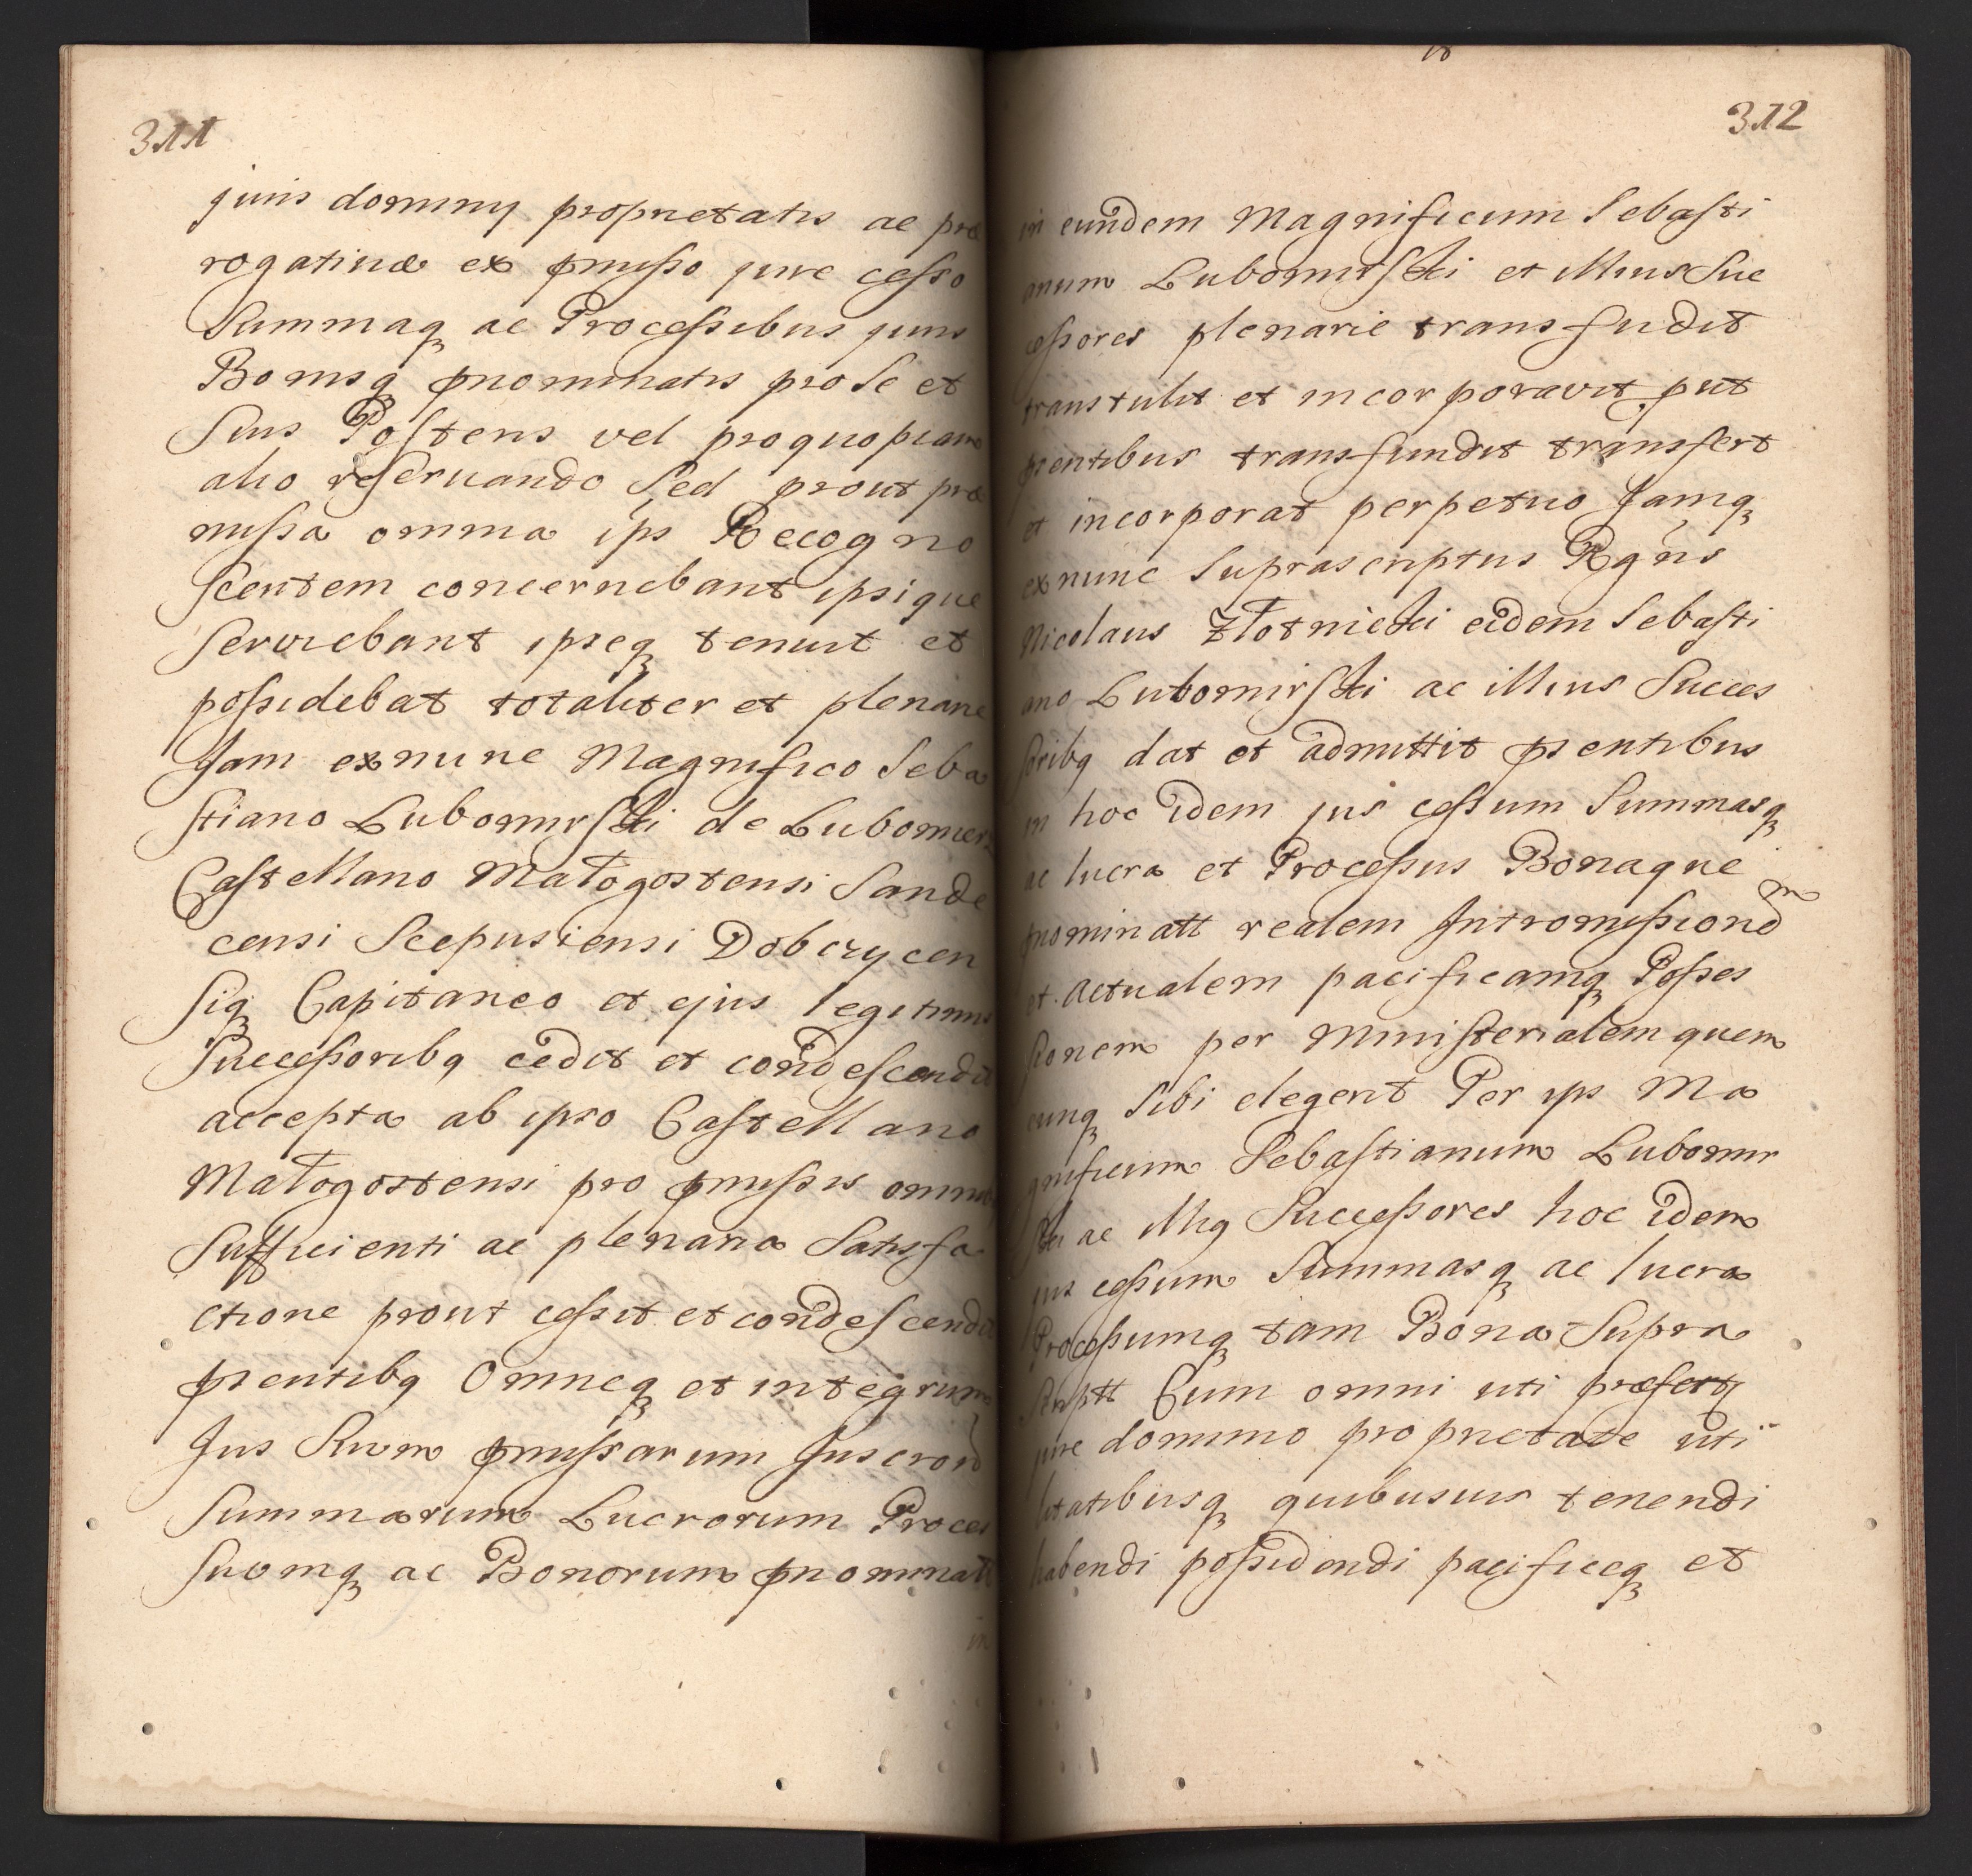 311
juris dominy proprietatis ac præ
rogativæ ex pmisso jure cesso
Summaq ac Processibus juris
Bonisq pnominatis pro se et
Suis Posteris vel pro quopiam
alio reservando Sed prout præ
missa omnia ips Recogno
Scentem concernebant ipsique
Serviebant ipseq tenuit et
possidebat totaliter et plenarie
Jam exnunc Magnifico Seba
stiano Lubomirski de Lubomierz
Castellano Małogostensi Sande
censi Scepusiensi Dobczycen
Siq Capitaneo et ejus legitimis
Successoribq cedit et condescendit
accepta ab ipso Castellano
Małogostensi pro pmissis omnibq
Sufficienti ac plenaria Satisfa
ctione prout cessit et condescendit
psentibq Omneq et integrum
Jus Suum pmissarum Inscron
Summarum Lucrorum Proces
Suumq ac Bonorum pnominatt
in
312
in eundem Magnificum Sebasti
anum Lubomirski et illius Suc
cessores plenarie transfudit
transtulit et incorporavit put
psentibus transfundit transfert
et incorporat perpetuo Jamq
exnunc Suprascriptus Rgns
Nicolaus Złotnicki eidem Sebasti
ano Lubomirski ac illius Succes
Soribq dat et admittit psentibus
in hoc idem jus cessum Summasq
ac lucra et Processus Bonaque
pnominatt realem Intromissionem
et Actualem pacificamq Posses
Sionem per Ministerialem quem
cunq Sibi elegerit Per ips Ma
gnificum Sebastianum Lubomir
Ski ac illiq Successores hoc idem
jus cessum Summasq ac lucra
Processumq tam Bona Supra
Scriptt Cum omni uti præfertq
jure dominio proprietate uti
litatibusq quibusvis tenendi
habendi possidendi pacificeq et